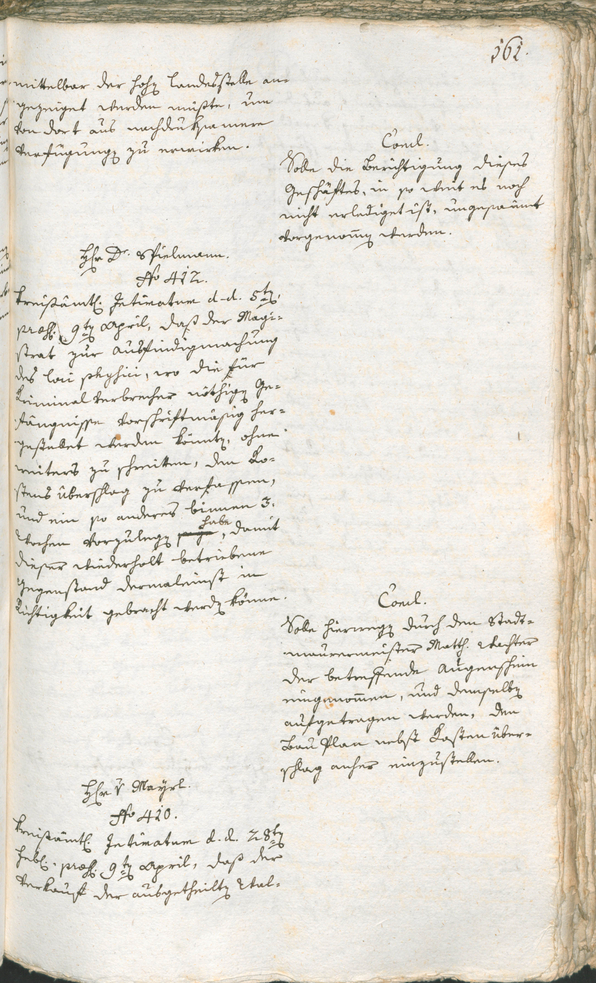 161.
mittelbar der hohen Landesstelle an-
gezeiget werden müsste, um
von dort aus nachdruksamere
Verfügungen zu erwirken.
Concl.
Solle die Berichtigung dieses
Geschäftes, in so weit es noch
nicht erlediget ist, ungesaumt
vorgenommen werden.
Hr. Dr. Spielmann.
No 412.
Kreisämtl. Intimatum d. d. 5ten
praes. 9ten April, daß der Magi-
strat zur Ausfindigmachung
des loci, wo die für
Kriminal Verbrecher nöthigen Ge-
fängnisse vorschriftmäsig her-
gestellet werden könnten, ohne
weiters zu schreiten, den Ko-
stens überschlag zu verfassen,
und ein so anderes binnen 3.
Wochen vorzulegen habe, damit
dieser wiederholt betriebene
Gegenstand dermaleinst in
Richtigkeit gebracht werden könne.
Concl.
Solle hierwegen durch den Stadt-
maurermeister Matth. Wachter
der betreffende Augenschein
eingenommen, und demselben
aufgetragen werden, den
Bau Plan nebst Kosten über-
schlag anher einzustellen.
Hr. v Mayrl.
No 410.
Kreisämtl. Intimatum d. d. 28ten
praes. 9ten April, daß der
Verkauf der ausgetheilten Wal-